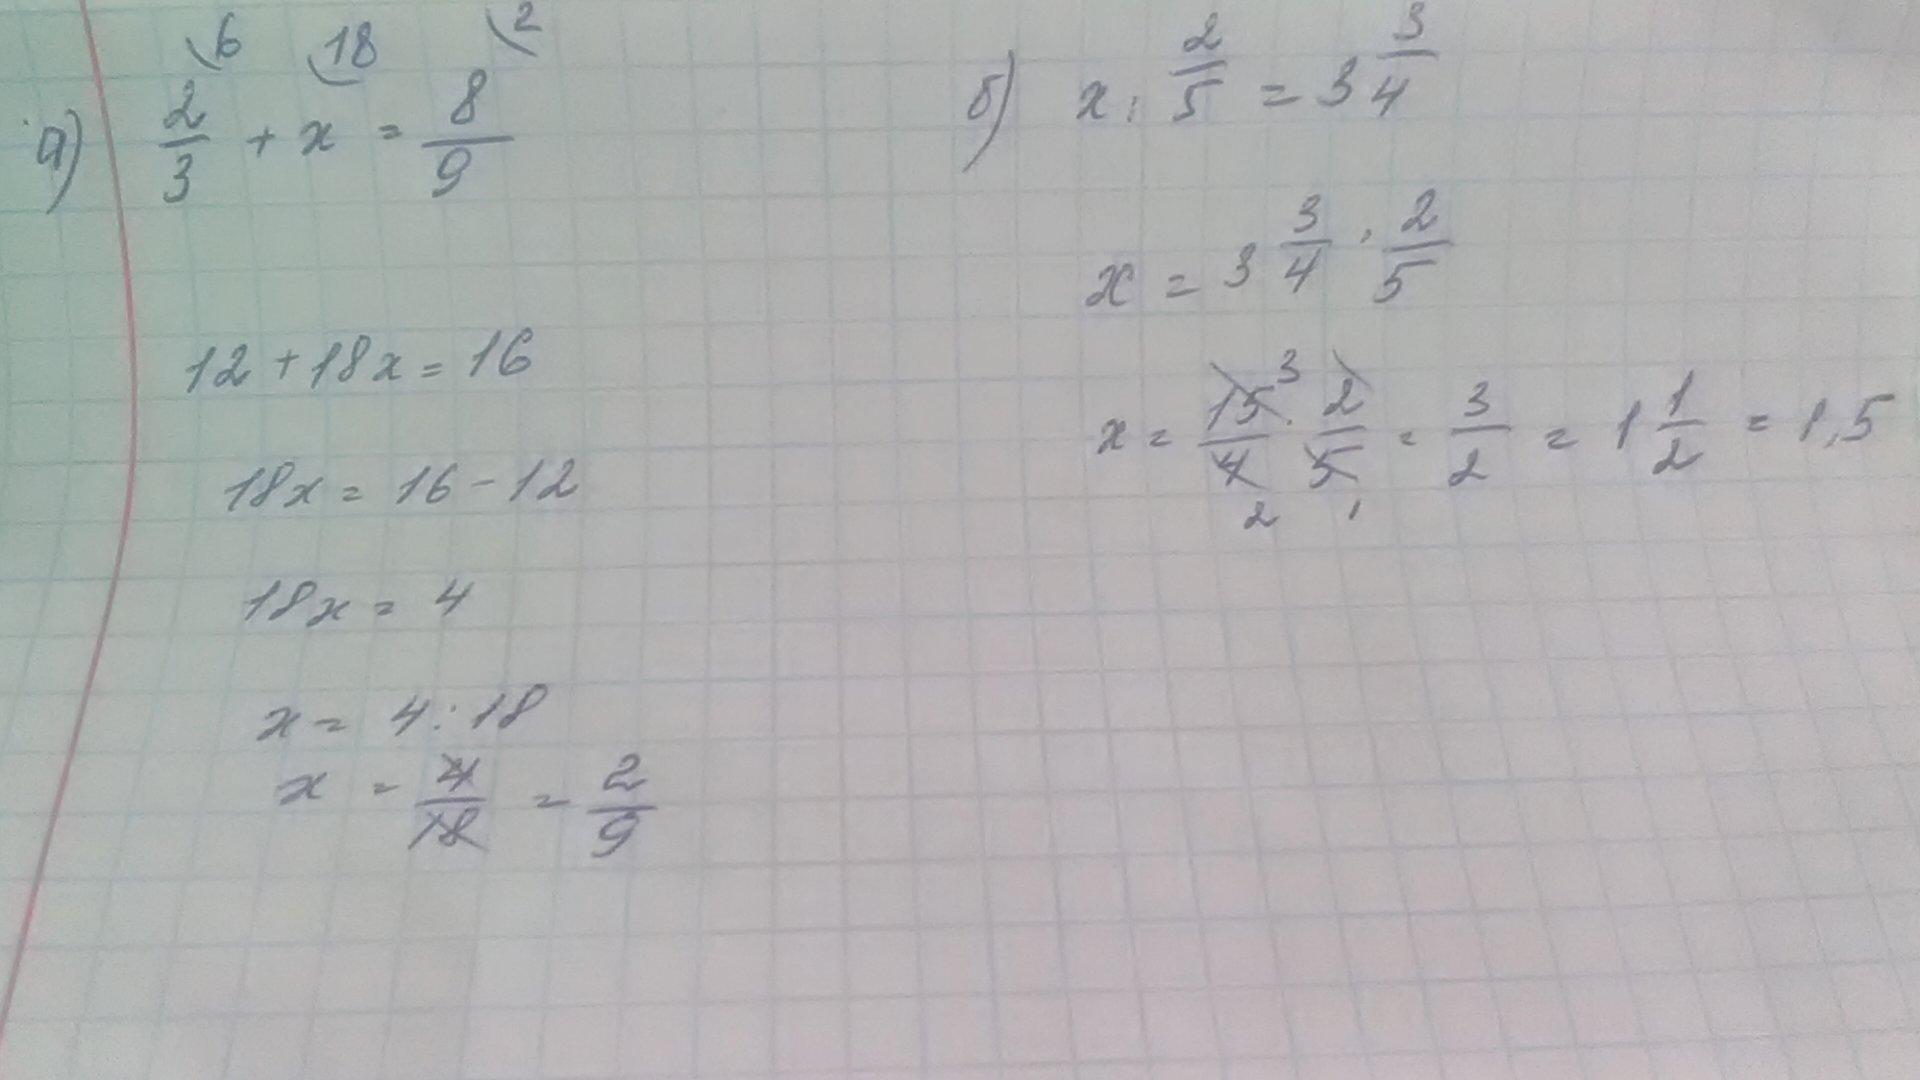 а) 2/3 \6 + x \18 = 8/9 \2
12 + 18x = 16
18x = 16 - 12
18x = 4
x = 4 : 18
x = 4/18 = 2/9
б) x : 2/5 = 3 3/4
x = 3 3/4 · 2/5
x = 15/4 3 2 · 2/5 1 = 3/2 = 1 1/2 = 1,5